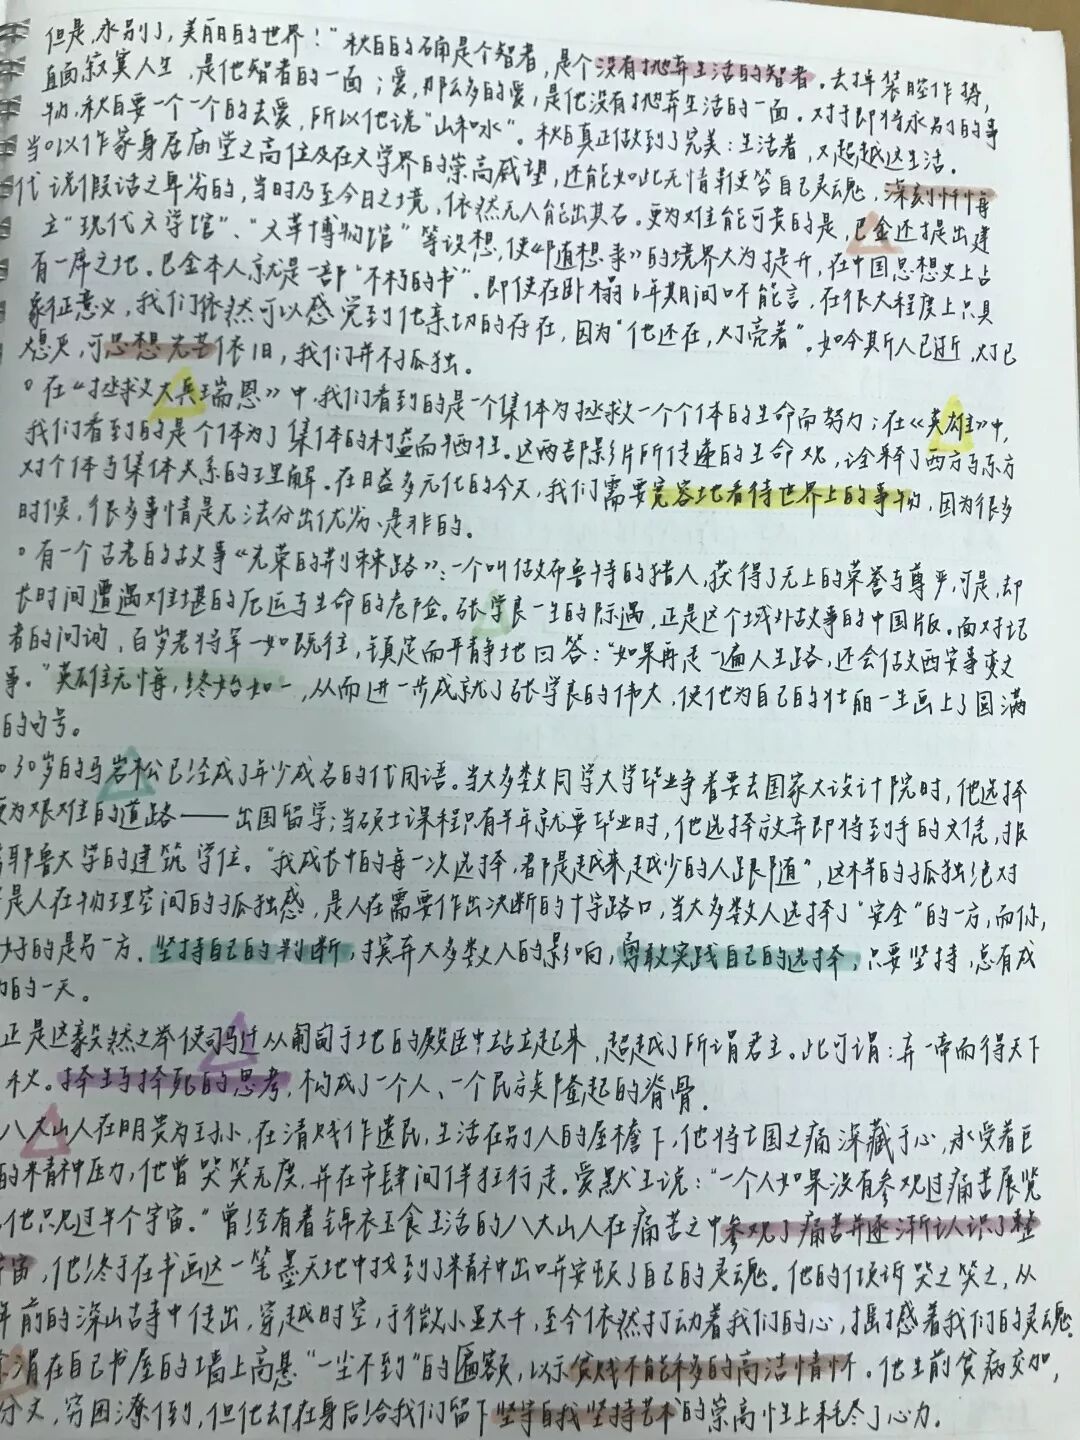 但是,永别了,美丽的世界!”秋白的确是个智者,是个没有抛弃生活的智者。去掉装腔作势,
直面寂寞人生,是他智者的一面;爱,那么多的爱,是他没有抛弃生活的一面。对于即将永别的事
物,秋白要一个一个的去爱,所以他说“山和水”。秋白真正做到了完美:生活者,又超越这生活。
当。以作家身居庙堂之高位及在文学界的崇高威望,还能如此无情鞭笞自己灵魂,深刻忏悔
代说假话之卑劣的,当时乃至今日之境,依然无人能出其右。更为难能可贵的是,巴金还提出建
立“现代文学馆”、“文革博物馆”等设想,使《随想录》的境界大为提升,在中国思想史上占
有一席之地。巴金本人就是一部“不朽的书”。即使在卧榻6年期间口不能言,在很大程度上只具
象征意义,我们依然可以感觉到他亲切的存在,因为“他还在,灯亮着”。如今其斯人已逝,灯已
熄灭,可思想光芒依旧,我们并不孤独。
。在《拯救大兵瑞恩》中,我们看到的是一个集体为拯救一个个体的生命而努力;在《英雄》中,
我们看到的是个体为了集体的利益而牺牲。这两部影片所传递的生命观,诠释了西方与东方
对个体与集体关系的理解。在日益多元化的今天,我们需要宽容地看待世界上的事物,因为很多
时候,很多事情是无法分出优劣、是非的。
。有一个古老的故事《光荣的荆棘路》:一个叫做布鲁特的猎人,获得了无上的荣誉与尊严,可是,却
长时间遭遇难堪的厄运与生命的危险。张学良一生的际遇,正是这个域外故事的中国版。面对记
者的问询,百岁老将军一如既往,镇定而平静地回答:“如果再走一遍人生路,还会做西安事变之
事。”英雄无悔,终始如一,从而进一步成就了张学良的伟大,使他为自己的壮丽一生画上了圆满
的句号。
。30岁的马岩松已经成了年少成名的代用语。当大多数同学大学毕业争着要去国家大设计院时,他选择
更为艰难的道路——出国留学;当硕士课程只有半年就要毕业时,他选择放弃即将到手的文凭,报
耶鲁大学的建筑学位。“我成长中的每一次选择,都是越来越少的人跟随”,这样的孤独绝对
是人在物理空间的孤独感,是人在需要作出决断的十字路口,当大多数人选择了“安全”的一方,而你,
好的是另一方。坚持自己的判断,摈弃大多数人的影响,勇敢实践自己的选择,只要坚持,总有成
功的一天。
正是这毅然之举使司马迁从匍匐于地的殿臣中站立起来,超越了所谓君主。此可谓:弃一帝而得天下
秋。择生与择死的思考,构成了一个人、一个民族隆起的脊骨。
八大山人在明贵为王孙,在清贱作遗民,生活在别人的屋檐下,他将亡国之痛深藏于心,承受着巨
的精神压力,他曾哭笑无度,并在市肆间佯狂行走。爱默生说:“一个人如果没有参观过痛苦展览
他只见过半个宇宙。”曾经有着锦衣玉食生活的八大山人在痛苦之中参观了痛苦并逐渐认识了整
宙,他终于在书画这一笔墨天地中找到了精神出口并安顿了自己的灵魂。他的倾诉哭之笑之,从
年前的深山古寺中传出,穿越时空,于微小显大千,至今依然打动着我们的心,摇撼着我们的灵魂。
渭在自己书屋的墙上高悬“一尘不到”的匾额,以示贫贱不能移的高洁情怀。他生前贫病交加,
分文,穷困潦倒,但他却在身后给我们留下坚守自我坚持艺术的崇高性上耗尽了心力。